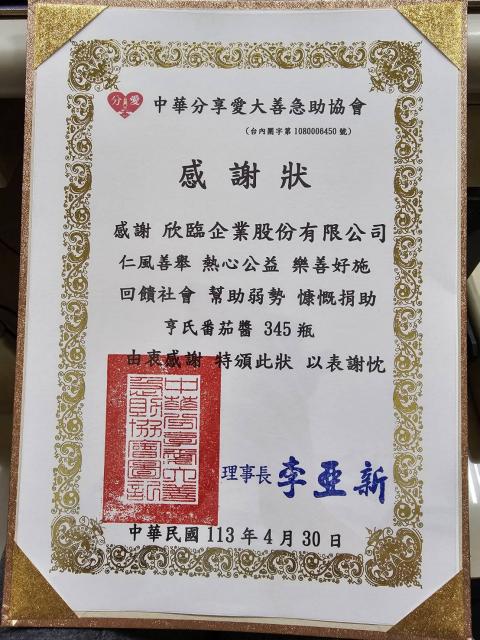 分愛
中華分享愛大善急助協會
（台內團字第 1080006450 號）
感謝狀
感謝 欣臨企業股份有限公司
仁風善舉 熱心公益 樂善好施
回饋社會 幫助弱勢 慷慨捐助
亨氏番茄醬 345 瓶
由衷感謝 特頒此狀 以表謝忱
理事長 李亞新
中華民國 113 年 4 月 30 日